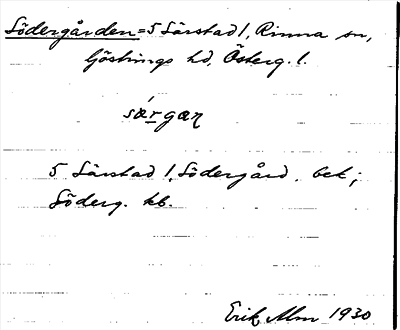 Södergården=5 Särstad 1, Rinna sn,
Göstrings hd, Österg. l.
sǽrgaɳ
5 Särstad 1, Södergård. bet;
Söderg. kb.
Erik Alm 1930